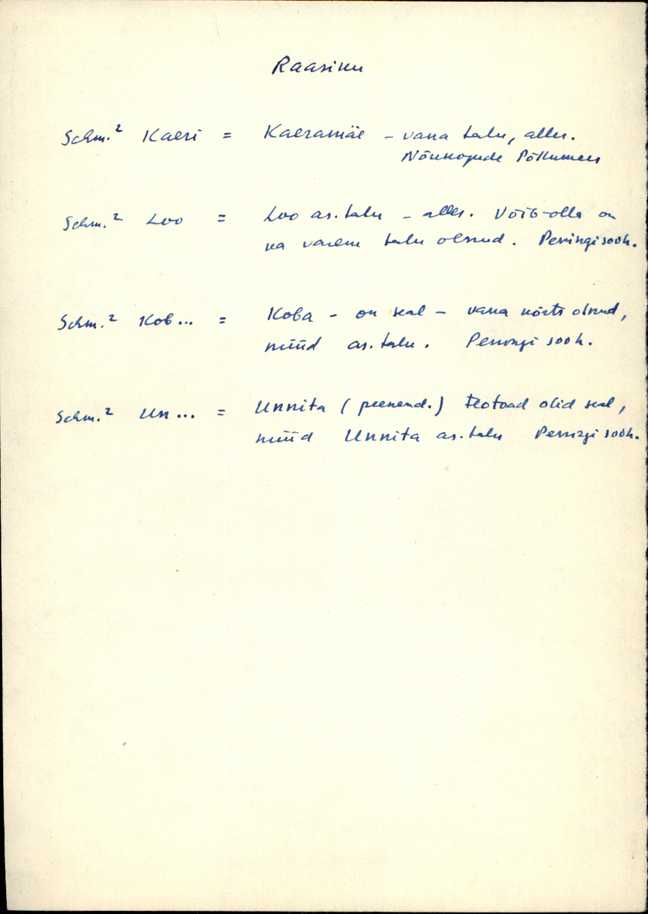 Raasiku
Schm.² Kaeri = Kaeramäe - vana talu, alles.
Nõukogude Põllumees
Schm.² Loo = Loo as.talu - alles. Võib-olla on
ka varem talu olnud. Peningi sooh.
Schm.² Kob... = Koba - on seal - vana kõrts olnud,
nüüd as.talu. Peningi sooh.
Schm.² Un... = Unnita (peenend.) olid seal,
nüüd Unnita as.talu Peningi sooh.